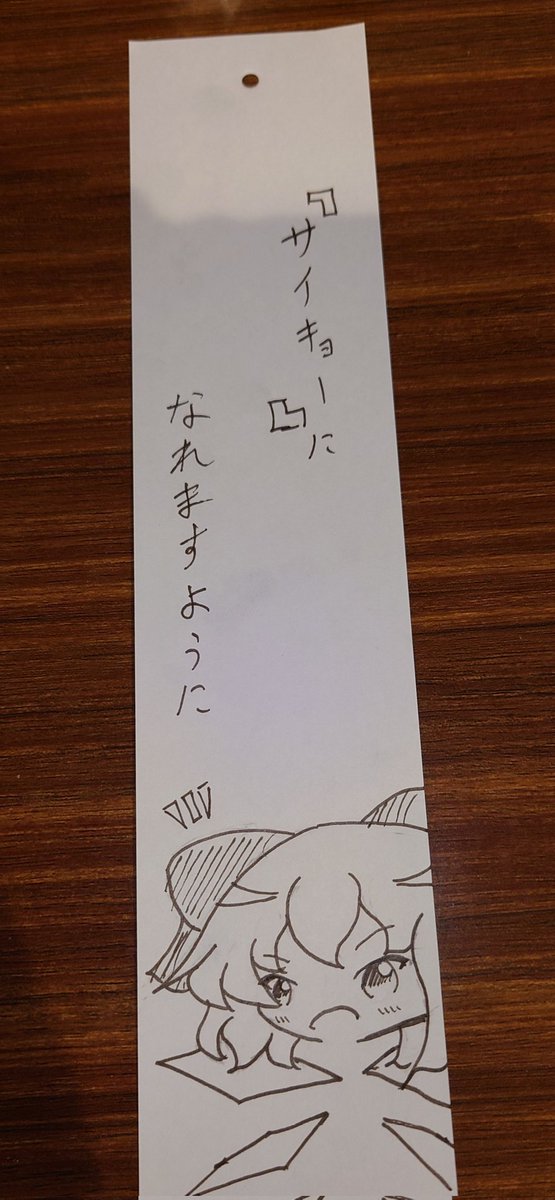 『サイキョー』に
なれますように